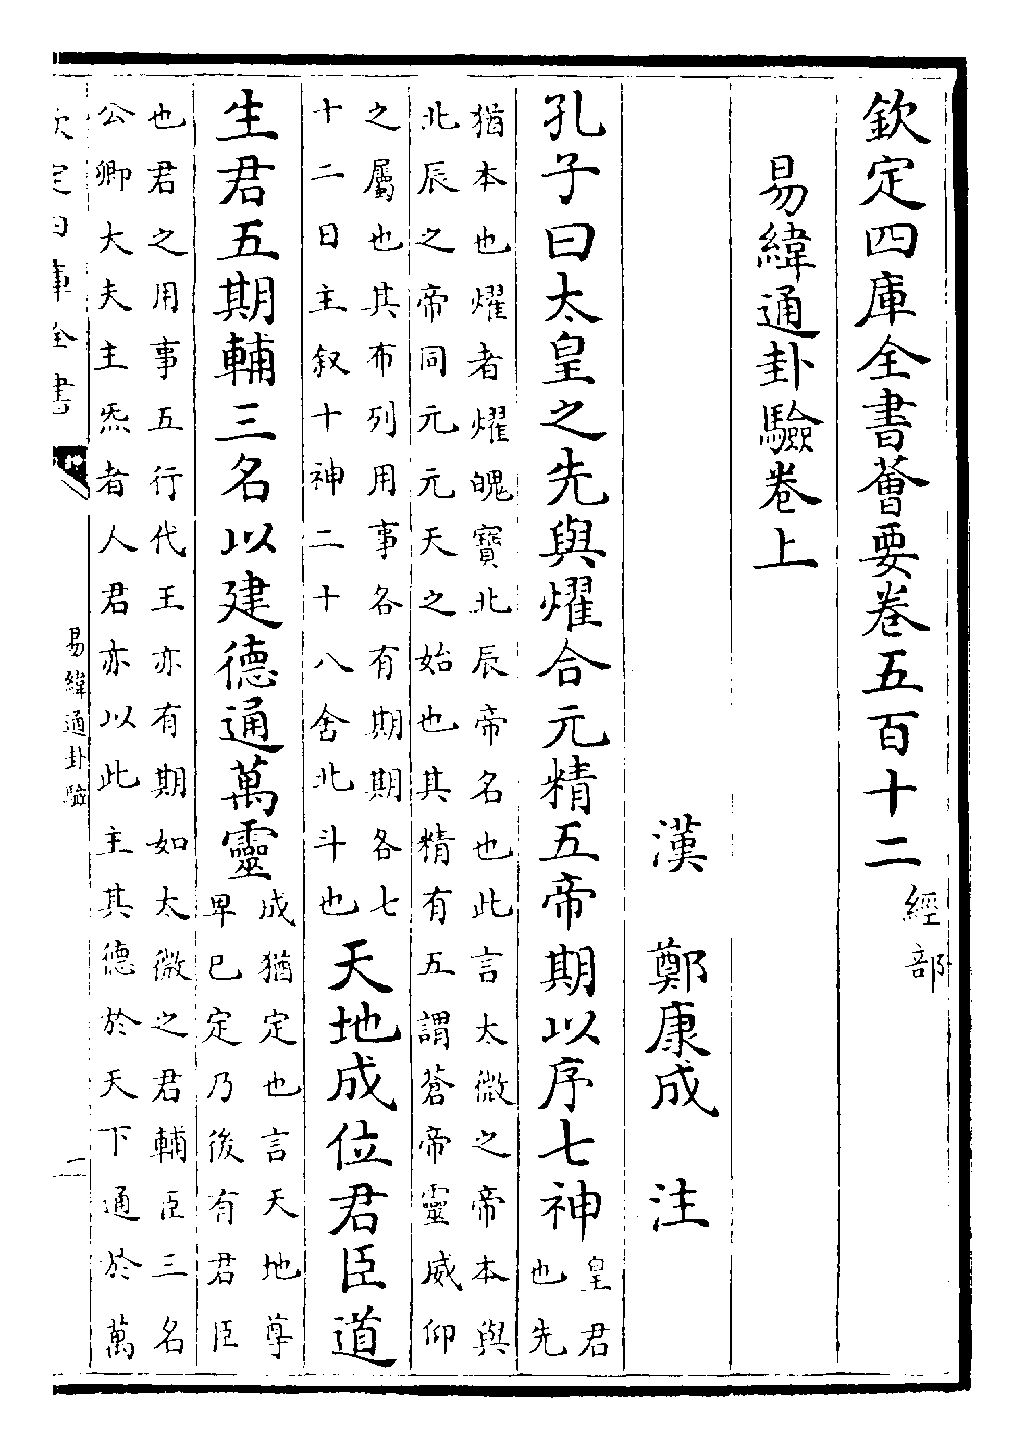 欽定四庫全書薈要卷五百十二 經部
易緯通卦驗卷上
漢 鄭康成 注
孔子曰太皇之先與燿合元精五帝期以序七神 皇君
也先
猶本也燿者燿魄寶北辰帝名也此言太微之帝本與
北辰之帝同元元天之始也其精有五謂蒼帝靈威仰
之屬也其布列用事各有期期各七
十二日主叙十神二十八舍北斗也
天地成位君臣道
生君五期輔三名以建德通萬靈 成猶定也言天地尊
卑巳定乃後有君臣
也君之用事五行代王亦有期如太微之君輔臣三名
公卿大夫主炁者人君亦以此主其德於天下通於萬
欽定四庫全書
易緯通卦驗
一